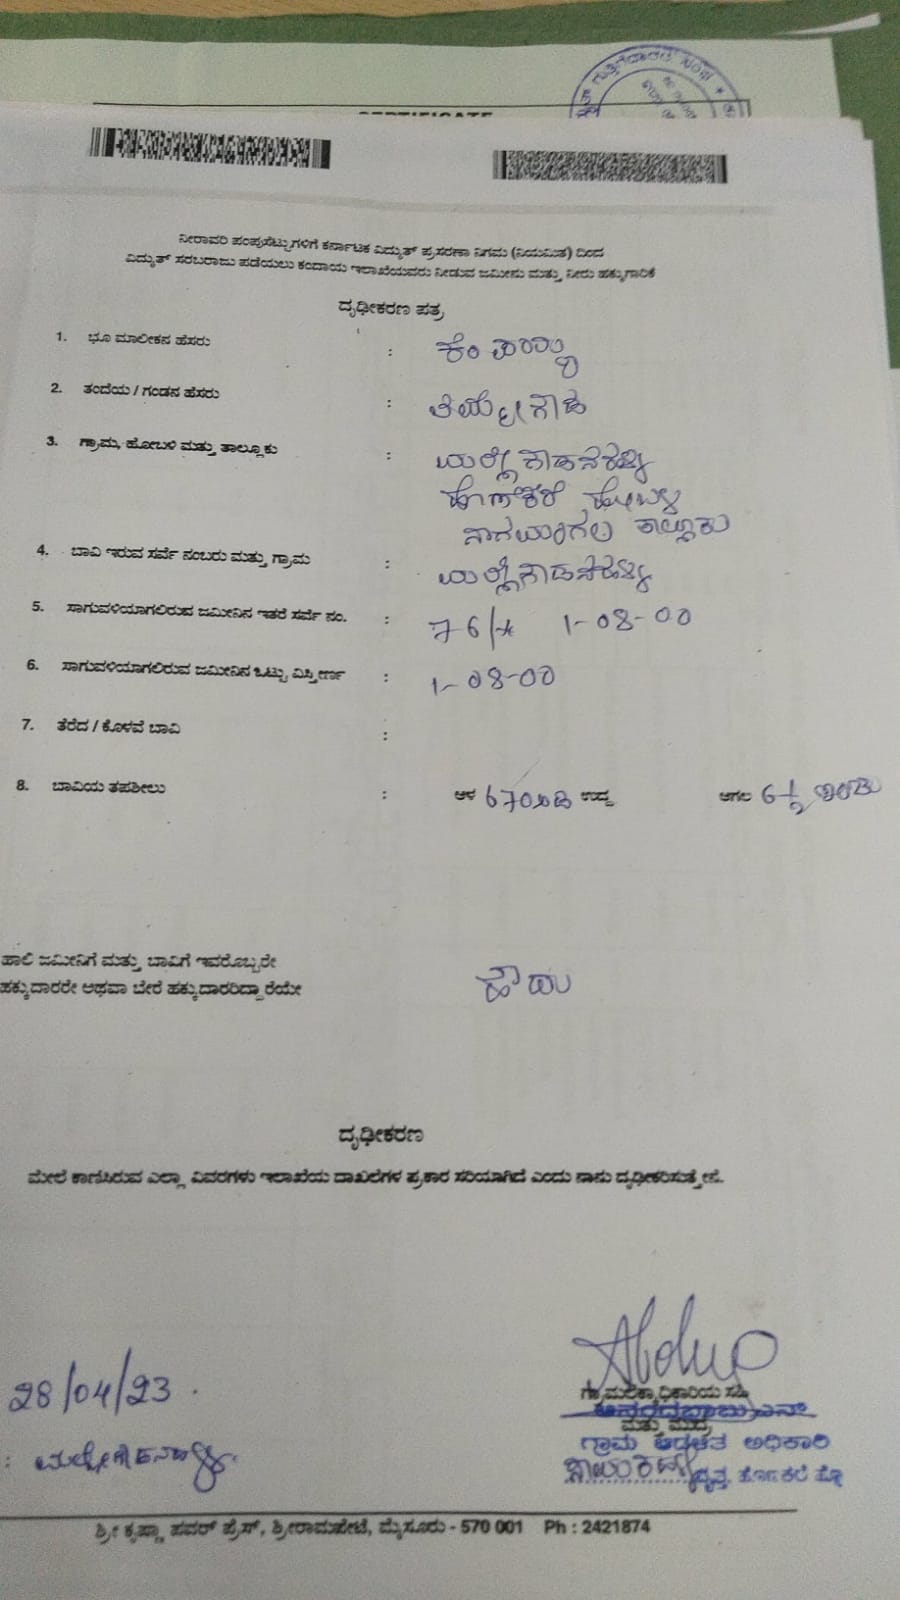 CERTIFICATE
ನೀರಾವರಿ ಪಂಪುಸೆಟ್ಟುಗಳಿಗೆ ಕರ್ನಾಟಕ ವಿದ್ಯುತ್ ಪ್ರಸರಣಾ ನಿಗಮ (ನಿಯಮಿತ) ದಿಂದ
ವಿದ್ಯುತ್ ಸರಬರಾಜು ಪಡೆಯಲು ಕಂದಾಯ ಇಲಾಖೆಯವರು ನೀಡುವ ಜಮೀನು ಮತ್ತು ನೀರು ಹಕ್ಕುಗಾರಿಕೆ
ದೃಢೀಕರಣ ಪತ್ರ
1. ಭೂ ಮಾಲೀಕನ ಹೆಸರು :
2. ತಂದೆಯ / ಗಂಡನ ಹೆಸರು : ತಿಮ್ಮೇಗೌಡ
3. ಗ್ರಾಮ, ಹೋಬಳಿ ಮತ್ತು ತಾಲ್ಲೂಕು : ಮಲ್ಲೇಗೌಡನಹಳ್ಳಿ
ಹೊಣಕೆರೆ ಹೋಬಳಿ
ನಾಗಮಂಗಲ ತಾಲ್ಲೂಕು
4. ಬಾವಿ ಇರುವ ಸರ್ವೆ ನಂಬರು ಮತ್ತು ಗ್ರಾಮ : ಮಲ್ಲೇಗೌಡನಹಳ್ಳಿ
5. ಸಾಗುವಳಿಯಾಗಲಿರುವ ಜಮೀನಿನ ಇತರೆ ಸರ್ವೆ ನಂ. : 1-08-00
6. ಸಾಗುವಳಿಯಾಗಲಿರುವ ಜಮೀನಿನ ಒಟ್ಟು ವಿಸ್ತೀರ್ಣ : 1-08-00
7. ತೆರೆದ / ಕೊಳವೆ ಬಾವಿ :
8. ಬಾವಿಯ ತಪಶೀಲು : ಆಳ 670 ಅಡಿ ಉದ್ದ ಅಗಲ 6½ ಇಂಚು
ಹಾಲಿ ಜಮೀನಿಗೆ ಮತ್ತು ಬಾವಿಗೆ ಇವರೊಬ್ಬರೇ
ಹಕ್ಕುದಾರರೇ ಅಥವಾ ಬೇರೆ ಹಕ್ಕುದಾರರಿದ್ದಾರೆಯೇ ಹೌದು
ದೃಢೀಕರಣ
ಮೇಲೆ ಕಾಣಿಸಿರುವ ಎಲ್ಲಾ ವಿವರಗಳು ಇಲಾಖೆಯ ದಾಖಲೆಗಳ ಪ್ರಕಾರ ಸರಿಯಾಗಿದೆ ಎಂದು ನಾನು ದೃಢೀಕರಿಸುತ್ತೇನೆ.
28/04/23
ಗ್ರಾಮಲೆಕ್ಕಾಧಿಕಾರಿಯ ಸಹಿ
ಮತ್ತು ಮುದ್ರೆ
ಗ್ರಾಮ ಆಡಳಿತ ಅಧಿಕಾರಿ
: ಮಲ್ಲೇಗೌಡನಹಳ್ಳಿ.
ವೃತ್ತ, ಹೊಣಕೆರೆ ಹೋ
ಶ್ರೀ ಕೃಷ್ಣಾ ಪವರ್ ಪ್ರೆಸ್, ಶ್ರೀರಾಮಪೇಟೆ, ಮೈಸೂರು - 570 001 Ph : 2421874